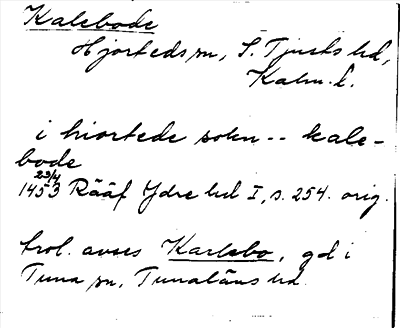 Kalebode
Hjorteds sn, S. Tjusts hd,
Kalm. l.
i hiortede sokn -- kale-
bode
23/4
1453 Rääf Ydre hd I, s. 254. orig.
trol. avses Karlebo, gd i
Tuna sn, Tunaläns hd.